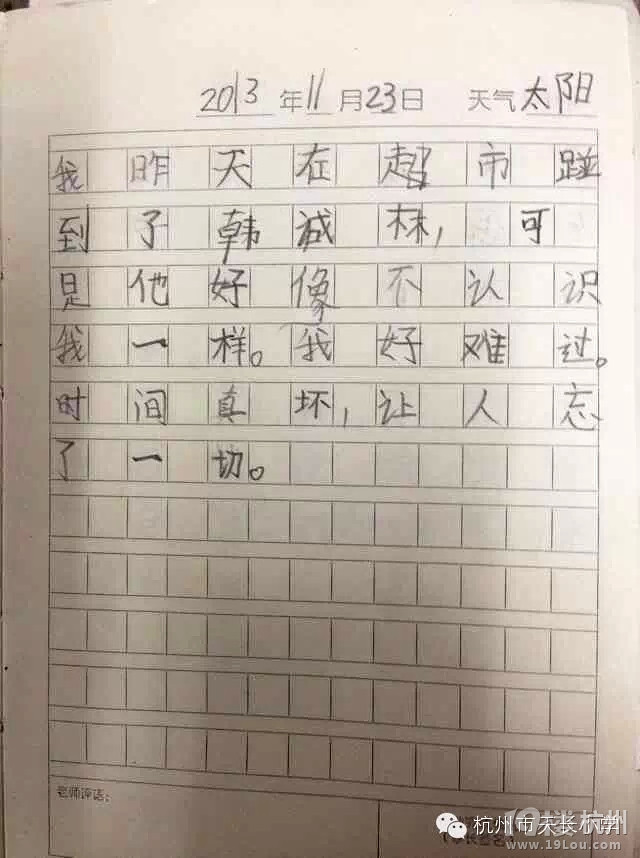 2013年11月23日 天气太阳
我昨天在超市踫
到了韩诚林,可
是他好像不认识
我一样。我好难过。
时间真坏,让人忘
了一切。
老师评语:
杭州市天长小学
19楼杭州
www.19Lou.com